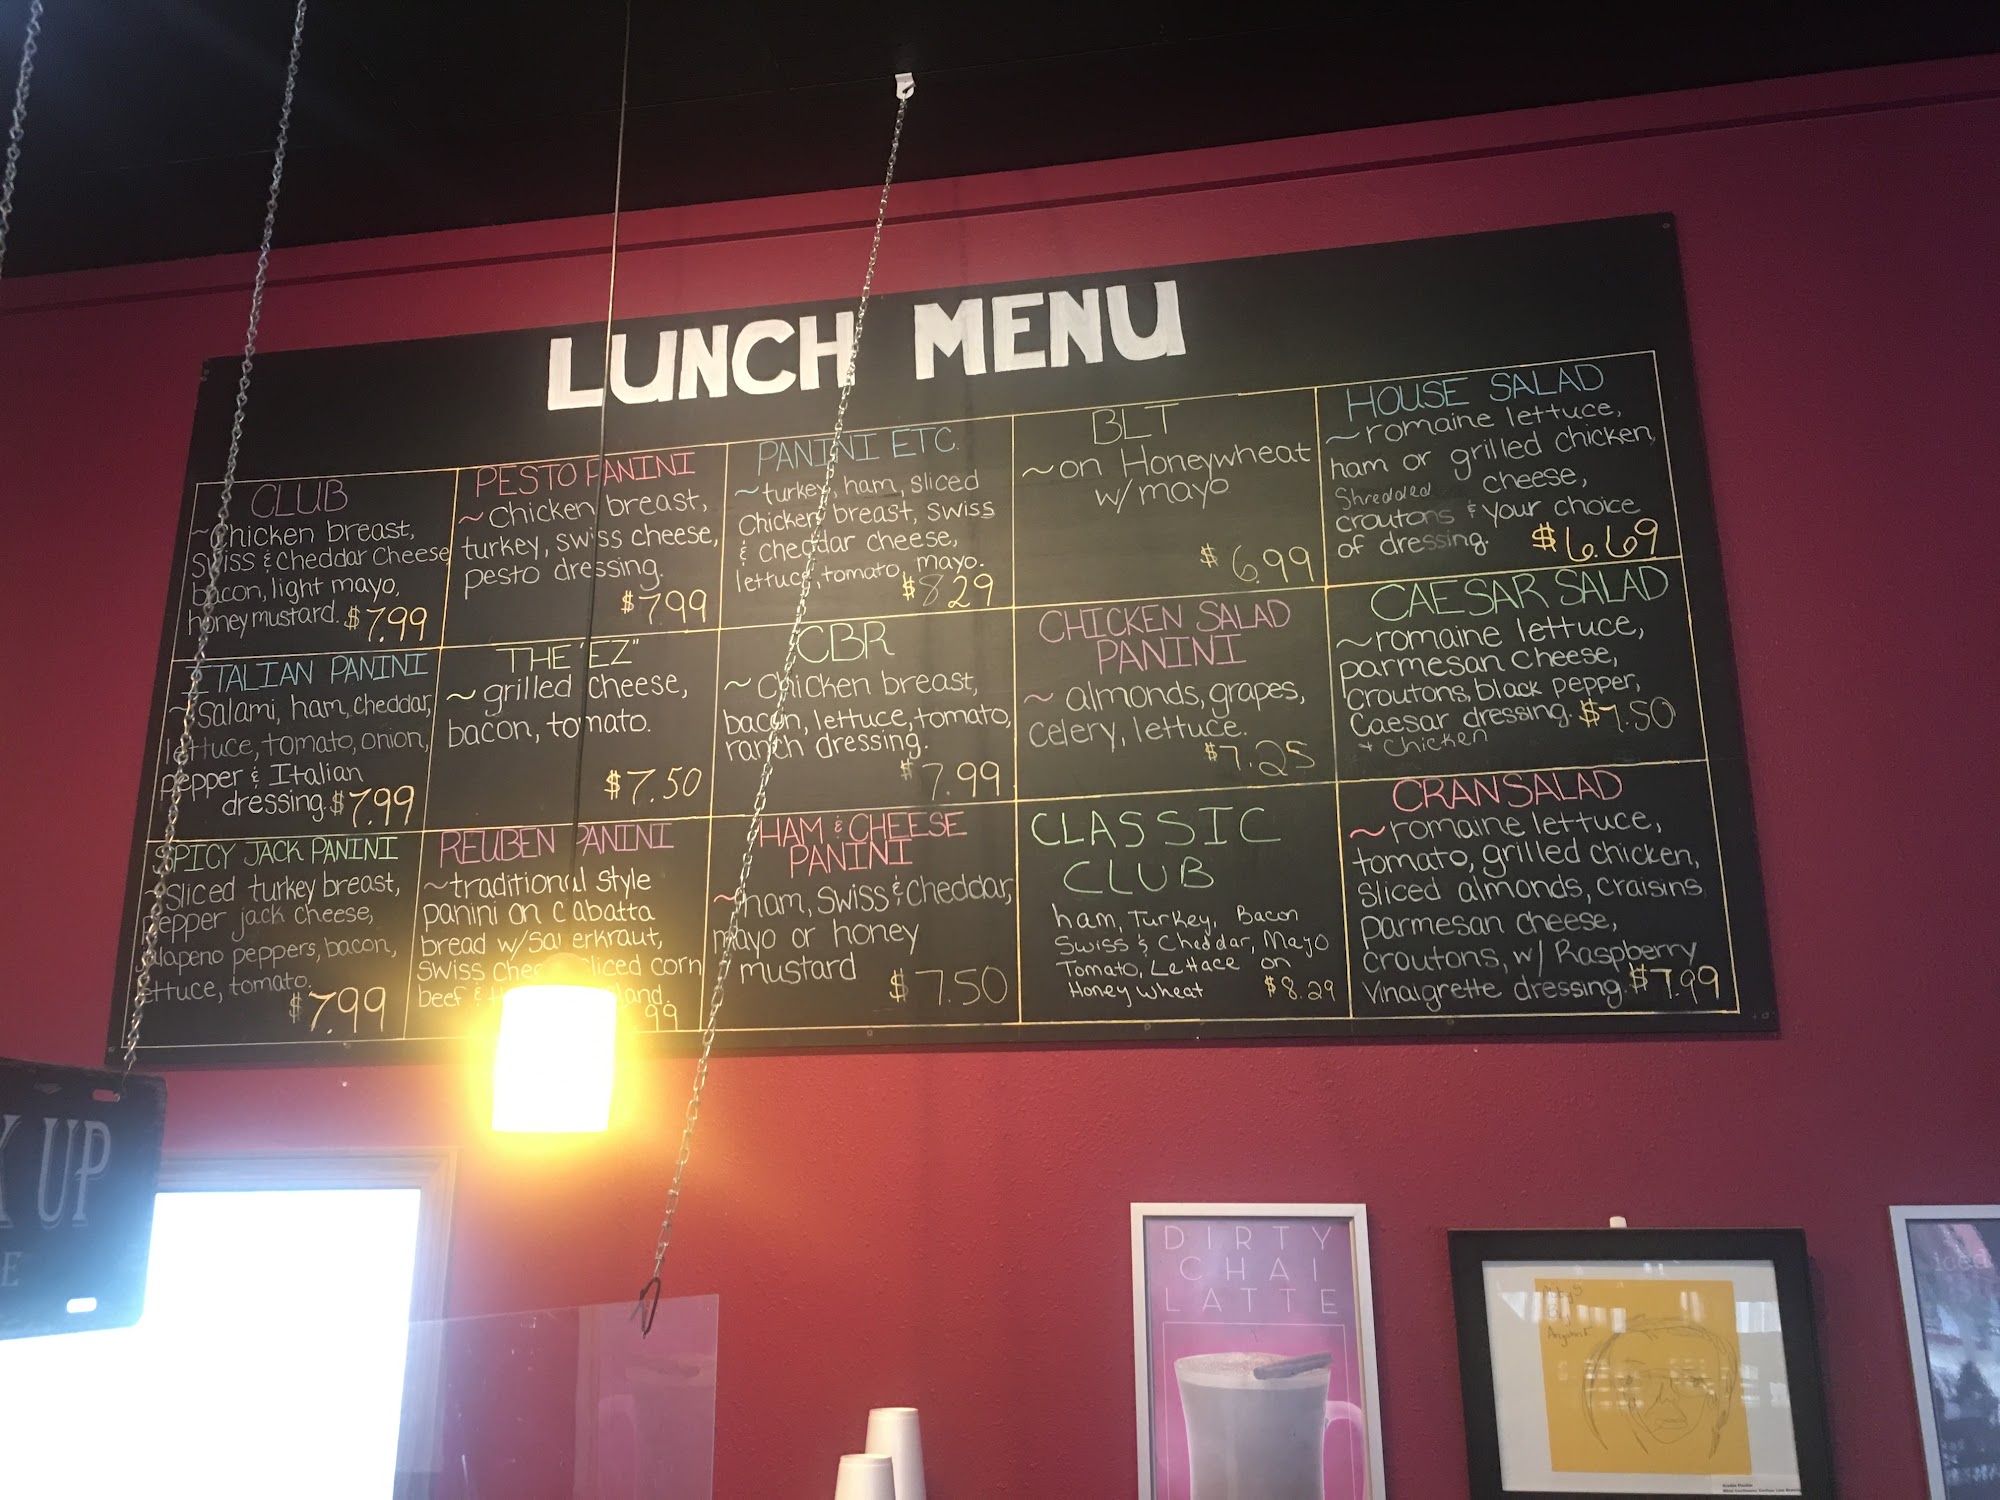 LUNCH MENU
CLUB
~Chicken breast,
Swiss & Cheddar Cheese
bacon, light mayo,
honey mustard. $7.99
PESTO PANINI
~Chicken breast,
turkey, swiss cheese,
pesto dressing.
$7.99
PANINI ETC.
~turkey, ham, sliced
Chicken breast, swiss
& cheddar cheese,
lettuce, tomato, mayo.
$8.29
BLT
~on Honeywheat
w/mayo
$6.99
HOUSE SALAD
~romaine lettuce,
ham or grilled chicken,
Shredded cheese,
croutons & your choice
of dressing. $6.69
ITALIAN PANINI
~Salami, ham, cheddar,
lettuce, tomato, onion,
pepper & Italian
dressing. $7.99
THE "EZ"
~grilled cheese,
bacon, tomato.
$7.50
CBR
~Chicken breast,
bacon, lettuce, tomato,
ranch dressing.
$7.99
CHICKEN SALAD
PANINI
~almonds, grapes,
celery, lettuce.
$7.25
CAESAR SALAD
~romaine lettuce,
parmesan cheese,
croutons, black pepper,
Caesar dressing. $7.50
+ Chicken
SPICY JACK PANINI
~Sliced turkey breast,
pepper jack cheese,
jalapeno peppers, bacon,
lettuce, tomato.
$7.99
REUBEN PANINI
~traditional style
panini on Ciabatta
bread w/Sauerkraut,
Swiss sliced corn
beef &
99
HAM & CHEESE
PANINI
~ham, Swiss & Cheddar,
mayo or honey
mustard
$7.50
CLASSIC
CLUB
ham, Turkey, Bacon
Swiss & Cheddar, Mayo
Tomato, Lettace on
Honey wheat $8.29
CRANSALAD
~romaine lettuce,
tomato, grilled chicken,
Sliced almonds, craisins
parmesan cheese,
croutons, w/ Raspberry
Vinaigrette dressing. $7.99
UP
E
DIRTY
CHAI
LATTE
iced